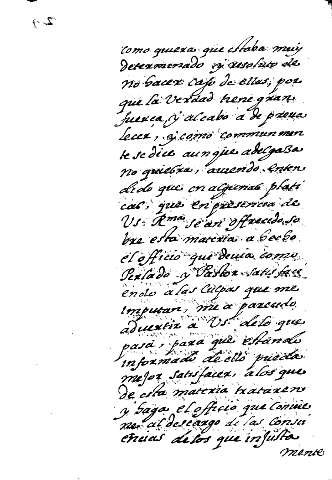 como quiera que estaba muy
determenado y resoluto de
no hacer caso de ellas, por
que la verdad tiene gran
fuerça, y al cabo a de preva
lecer, y como communmen
te se dice aunque adelgaza
no quiebra, auiendo enten
dido que en algunas platí
cas, que en presencia de
Vs. Rma. se an offrecido so
bre esta materia a hecho
el officio que deuia como
Perlado y Pastor satisfaci
endo a las culpas que me
imputan, me a parecido
advertir a Vs. de lo que
pasa, para que estando
informado de ello pueda
mejor satisfacer, a los que
de esta materia trataren
y haga el officio que convie
ne, al descargo de las consci
encias de los que injusta
mente